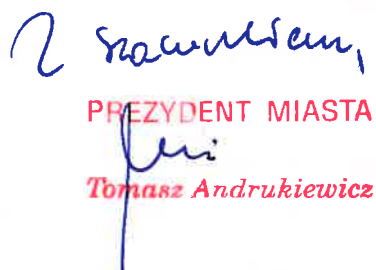 Z szacunkiem,
PREZYDENT MIASTA
Tomasz Andrukiewicz